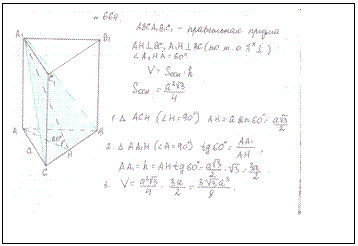 № 664.
ABCA₁B₁C₁ - правильная призма
AH⊥BC, A₁H⊥BC (по т. о 3ˣ⊥)
∠A₁HA = 60°
V = Sосн · h
Sосн = a²√3/4
1. △ ACH (∠H = 90°) AH = a sin 60° = a√3/2
2. △ AA₁H (∠A = 90°) tg 60° = AA₁/AH,
AA₁ = h = AH tg 60° = a√3/2 · √3 = 3a/2
3. V = a²√3/4 · 3a/2 = 3√3a³/8.
A₁
B₁
C₁
A
B
60°
a
H
C